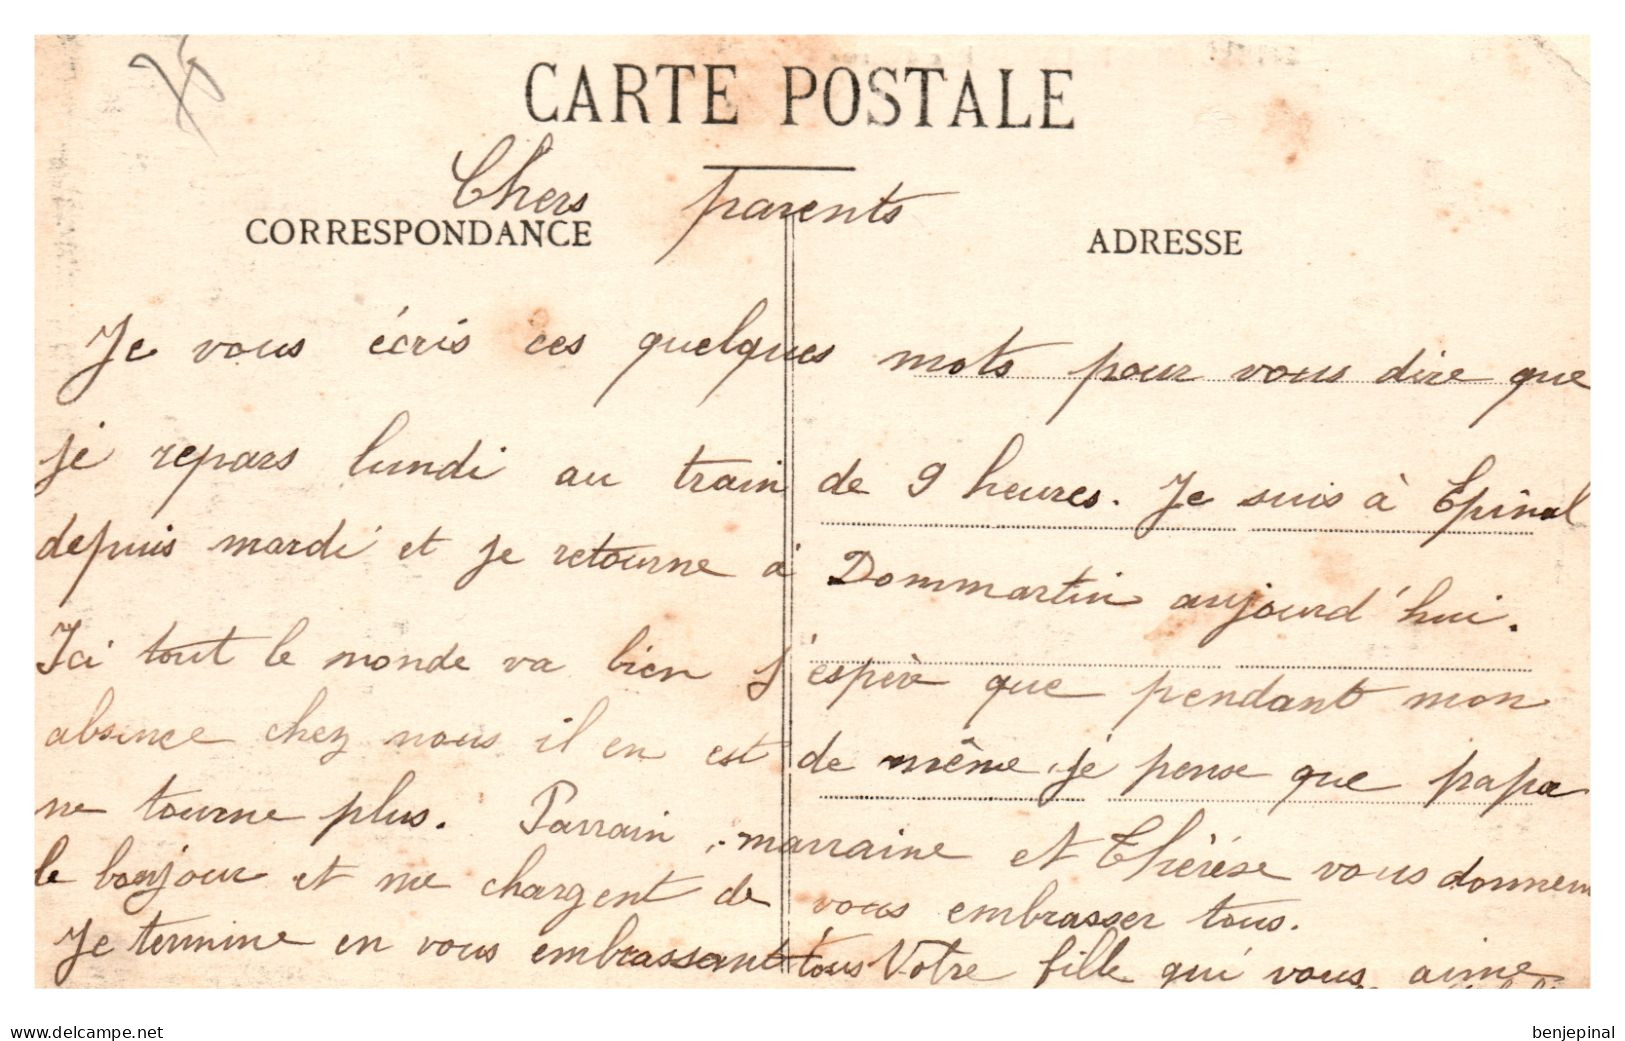 CARTE POSTALE
Chers parents
CORRESPONDANCE
ADRESSE
Je vous écris ces quelques mots pour vous dire que
je repars lundi au train de 9 heures. Je suis à Epinal
depuis mardi et je retourne à Dommartin aujourd'hui.
Ici tout le monde va bien j'espère que pendant mon
absence chez nous il en est de même, je pense que papa
ne tourne plus. Parrain, marraine et Thérèse vous donnent
le bonjour et me chargent de vous embrasser tous.
Je termine en vous embrassant tous Votre fille qui vous aime
www.delcampe.net
benjepinal